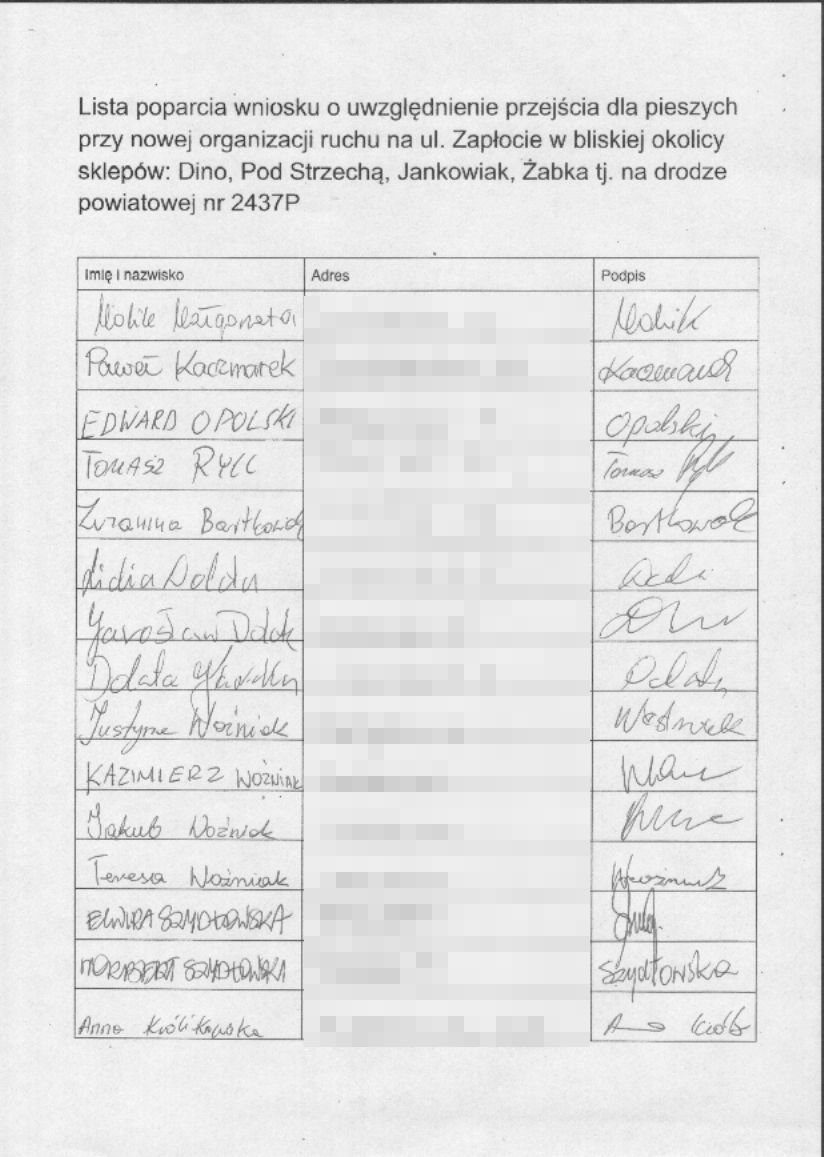 Lista poparcia wniosku o uwzględnienie przejścia dla pieszych
przy nowej organizacji ruchu na ul. Zapłocie w bliskiej okolicy
sklepów: Dino, Pod Strzechą, Jankowiak, Żabka tj. na drodze
powiatowej nr 2437P
Imię i nazwisko Adres Podpis
Małgorzata
Paweł Kaczmarek
EDWARD OPOLSKI Opolski
TOMASZ Tomasz
Bartkowiak
Lidia
Jarosław
Dolata
Justyna Woźniak
KAZIMIERZ WOŹNIAK
Jakub Woźniak
Teresa Woźniak
ELWIRA SZYDŁOWSKA
NORBERT SZYDŁOWSKI Szydłowska
Anna Królikowska